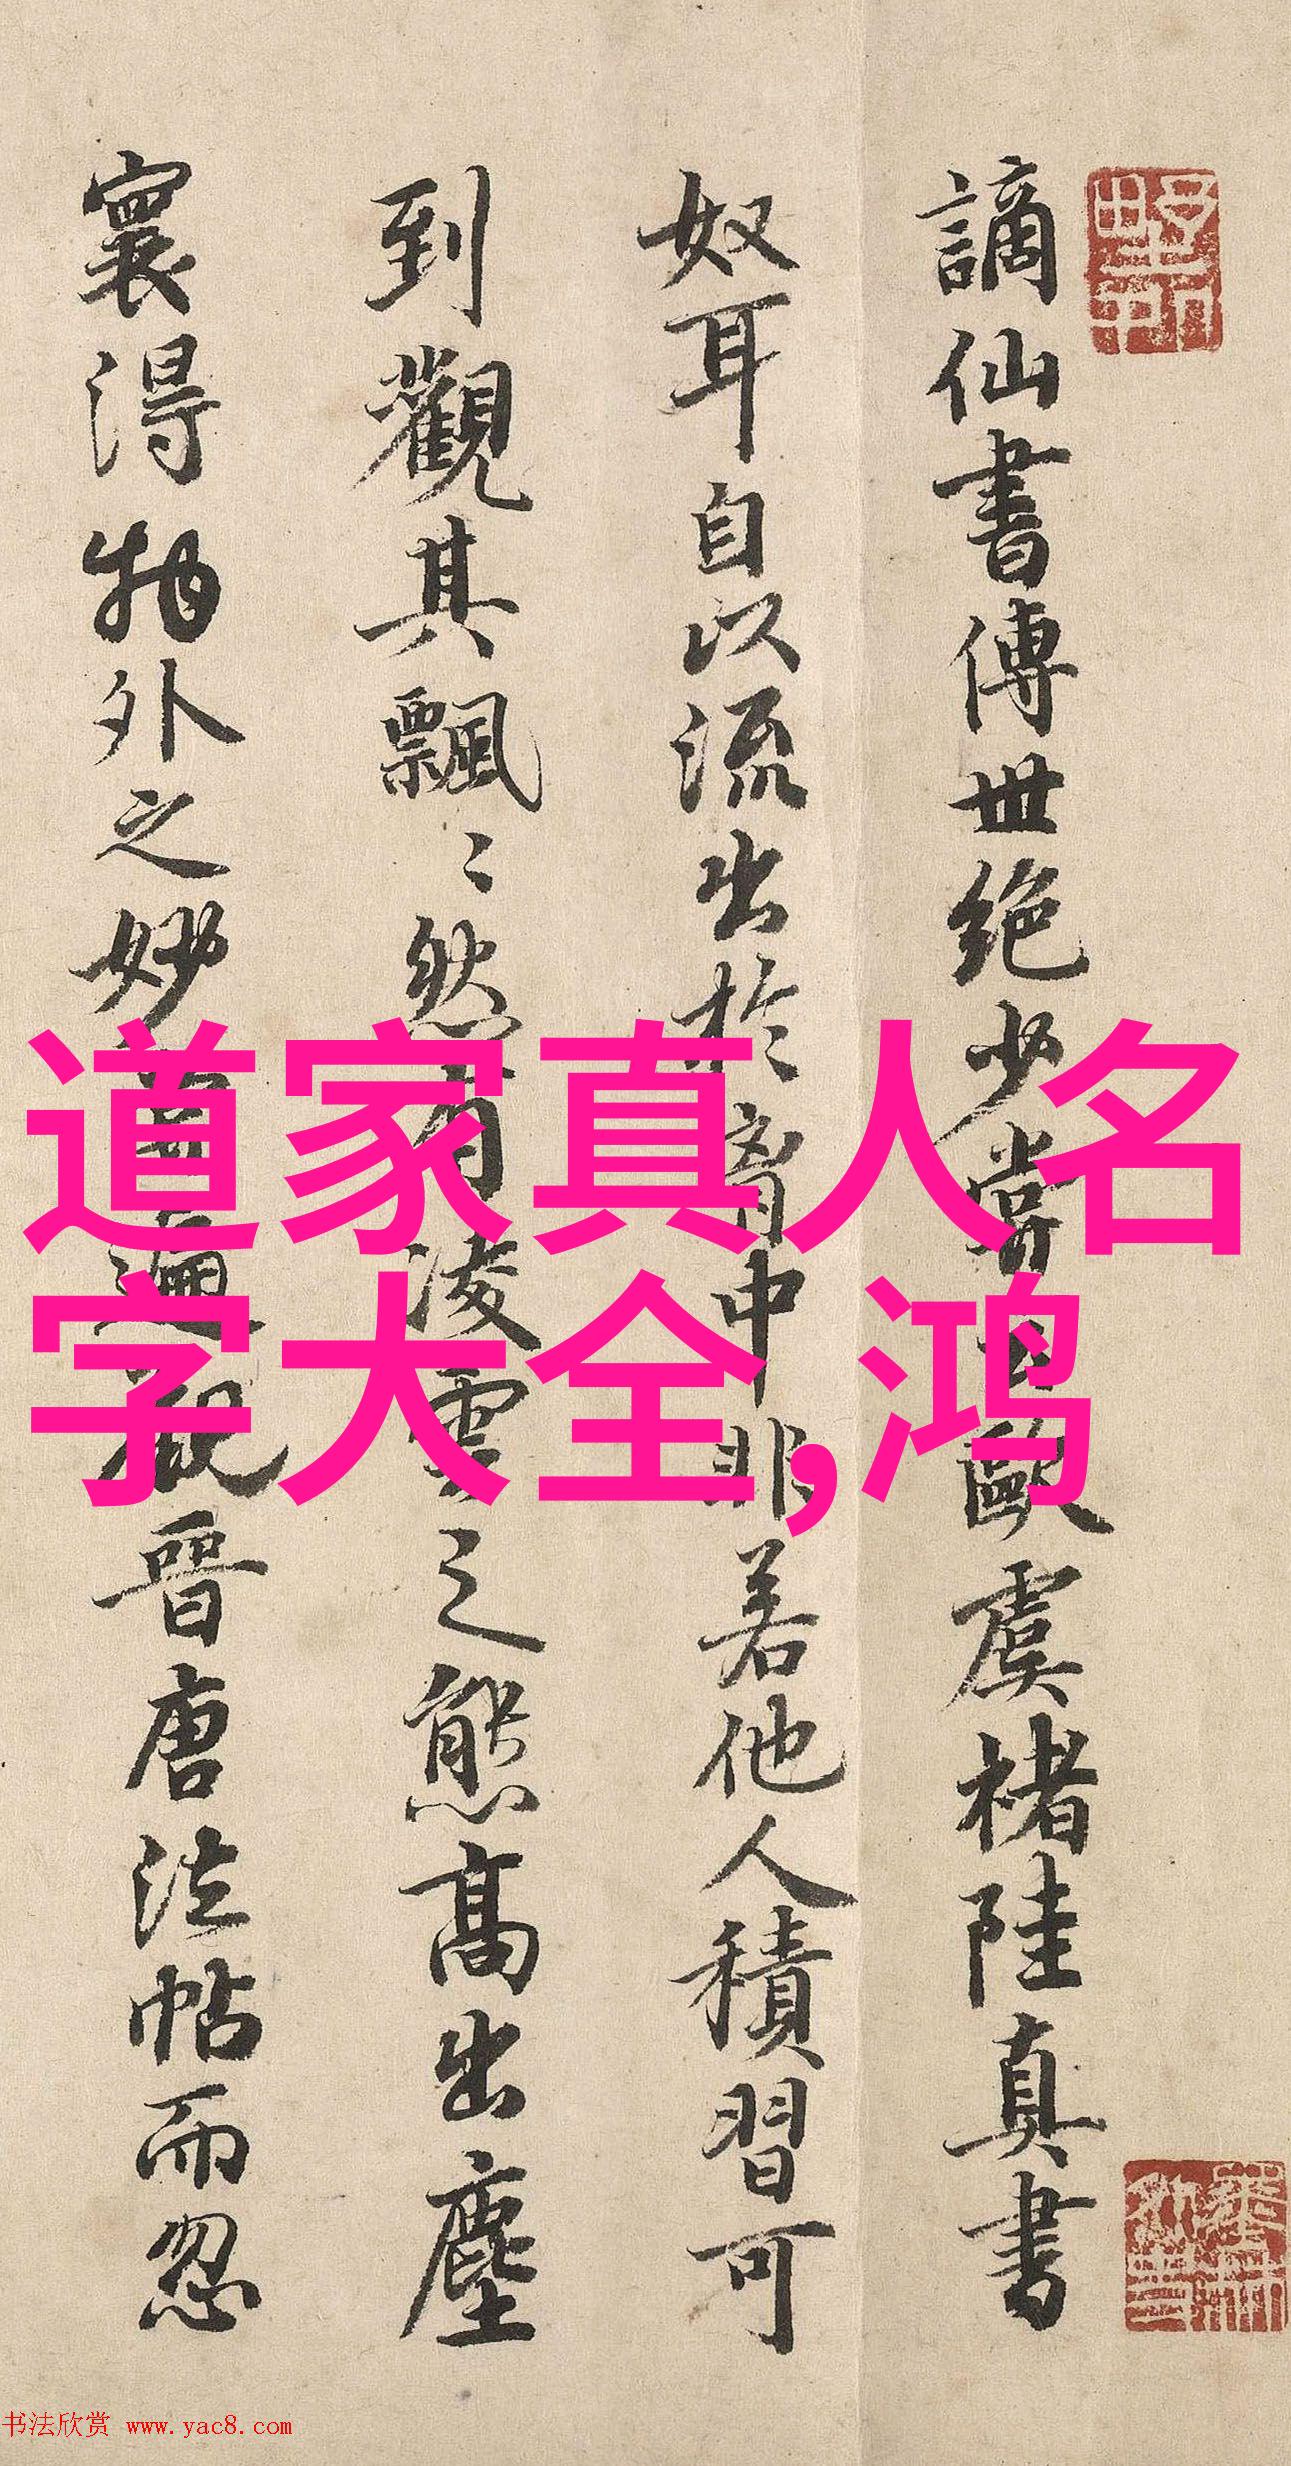 謫仙書傳世絕少嘗
歐虞褚陸真書
奴耳自以流出於胷中非若他人積習可
到觀其飄〻然有凌雲之態高出塵
寰得物外之妙
觀晉唐法帖而忽
道家真人名
字大全,鸿
书法欣赏 www.yac8.com